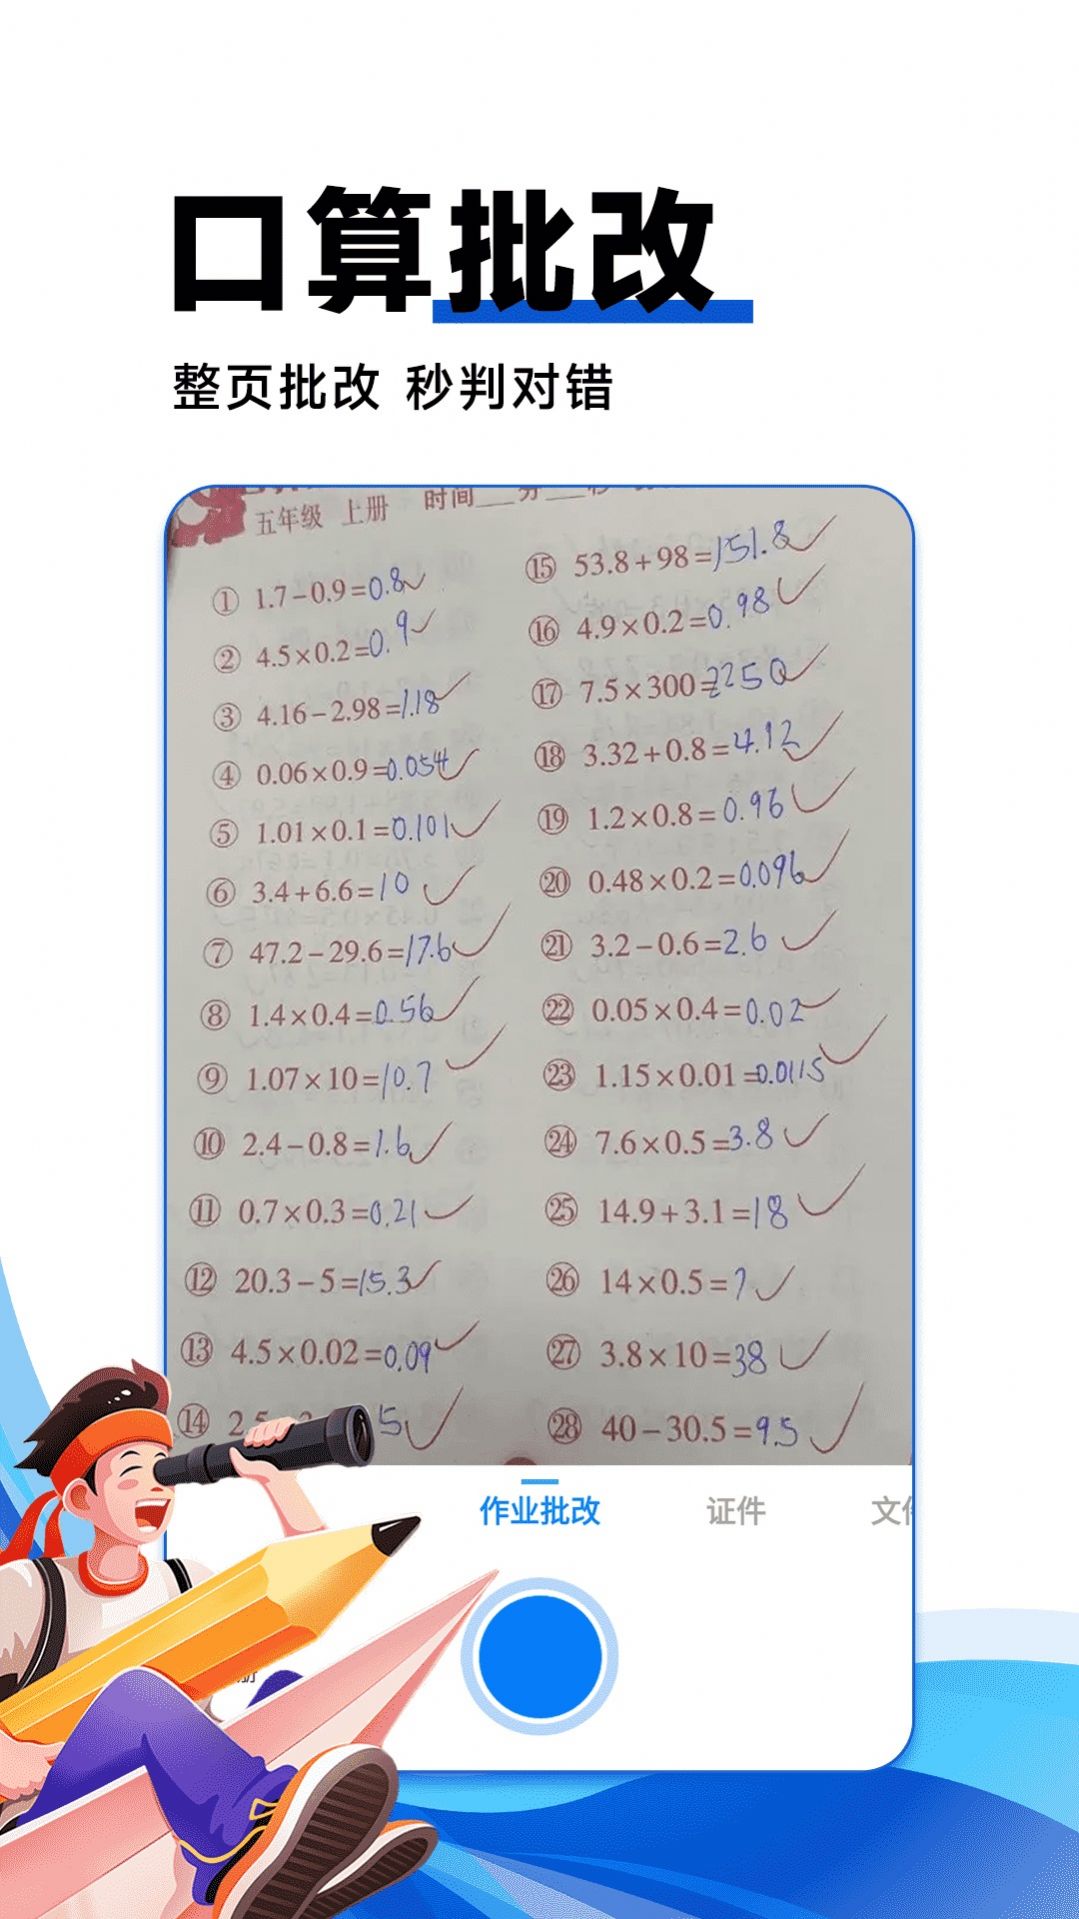 口算批改
整页批改 秒判对错
五年级 上册 时间___分___秒
① 1.7-0.9=0.8
② 4.5×0.2=0.9
③ 4.16-2.98=1.18
④ 0.06×0.9=0.054
⑤ 1.01×0.1=0.101
⑥ 3.4+6.6=10
⑦ 47.2-29.6=17.6
⑧ 1.4×0.4=0.56
⑨ 1.07×10=10.7
⑩ 2.4-0.8=1.6
⑪ 0.7×0.3=0.21
⑫ 20.3-5=15.3
⑬ 4.5×0.02=0.09
⑭ 2.5 5
⑮ 53.8+98=151.8
⑯ 4.9×0.2=0.98
⑰ 7.5×300=2250
⑱ 3.32+0.8=4.12
⑲ 1.2×0.8=0.96
⑳ 0.48×0.2=0.096
㉑ 3.2-0.6=2.6
㉒ 0.05×0.4=0.02
㉓ 1.15×0.01=0.0115
㉔ 7.6×0.5=3.8
㉕ 14.9+3.1=18
㉖ 14×0.5=7
㉗ 3.8×10=38
㉘ 40-30.5=9.5
作业批改 证件